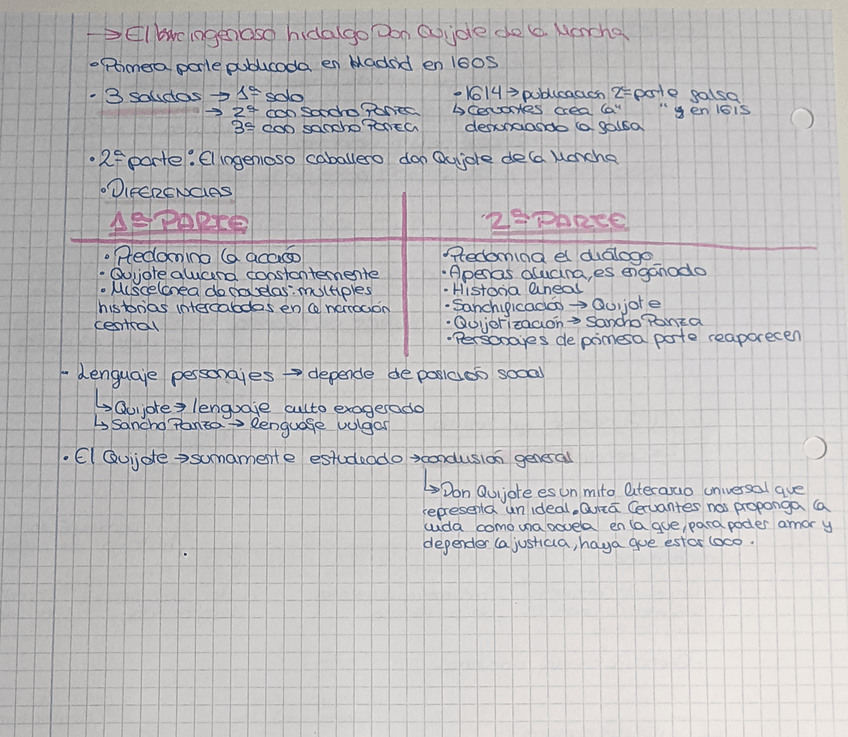 → El ingenioso hidalgo Don Quijote de la Mancha
• Primera parte publicada en Madrid en 1605
• 3 salidas → 1ª solo
→ 2ª con Sancho Panza
3ª con Sancho Panza
• 1614 → publicación 2ª parte falsa
↳ Cervantes crea la " " y en 1615
denunciando la falsa
• 2ª parte: El ingenioso caballero don Quijote de la Mancha
• DIFERENCIAS
1ª PARTE
• Predomina la acción
• Quijote alucina constantemente
• Miscelánea de novelas: múltiples
historias intercaladas en la narración
central
2ª PARTE
• Predomina el diálogo
• Apenas alucina, es engañado
• Historia lineal
• Sanchificación → Quijote
• Quijotización → Sancho Panza
• Personajes de primera parte reaparecen
- Lenguaje personajes → depende de posición social
↳ Quijote → lenguaje culto exagerado
↳ Sancho Panza → lenguaje vulgar
• El Quijote → sumamente estudiado → conclusión general
↳ Don Quijote es un mito literario universal que
representa un ideal. Quizá Cervantes nos proponga la
vida como una novela en la que, para poder amar y
defender la justicia, haya que estar loco.